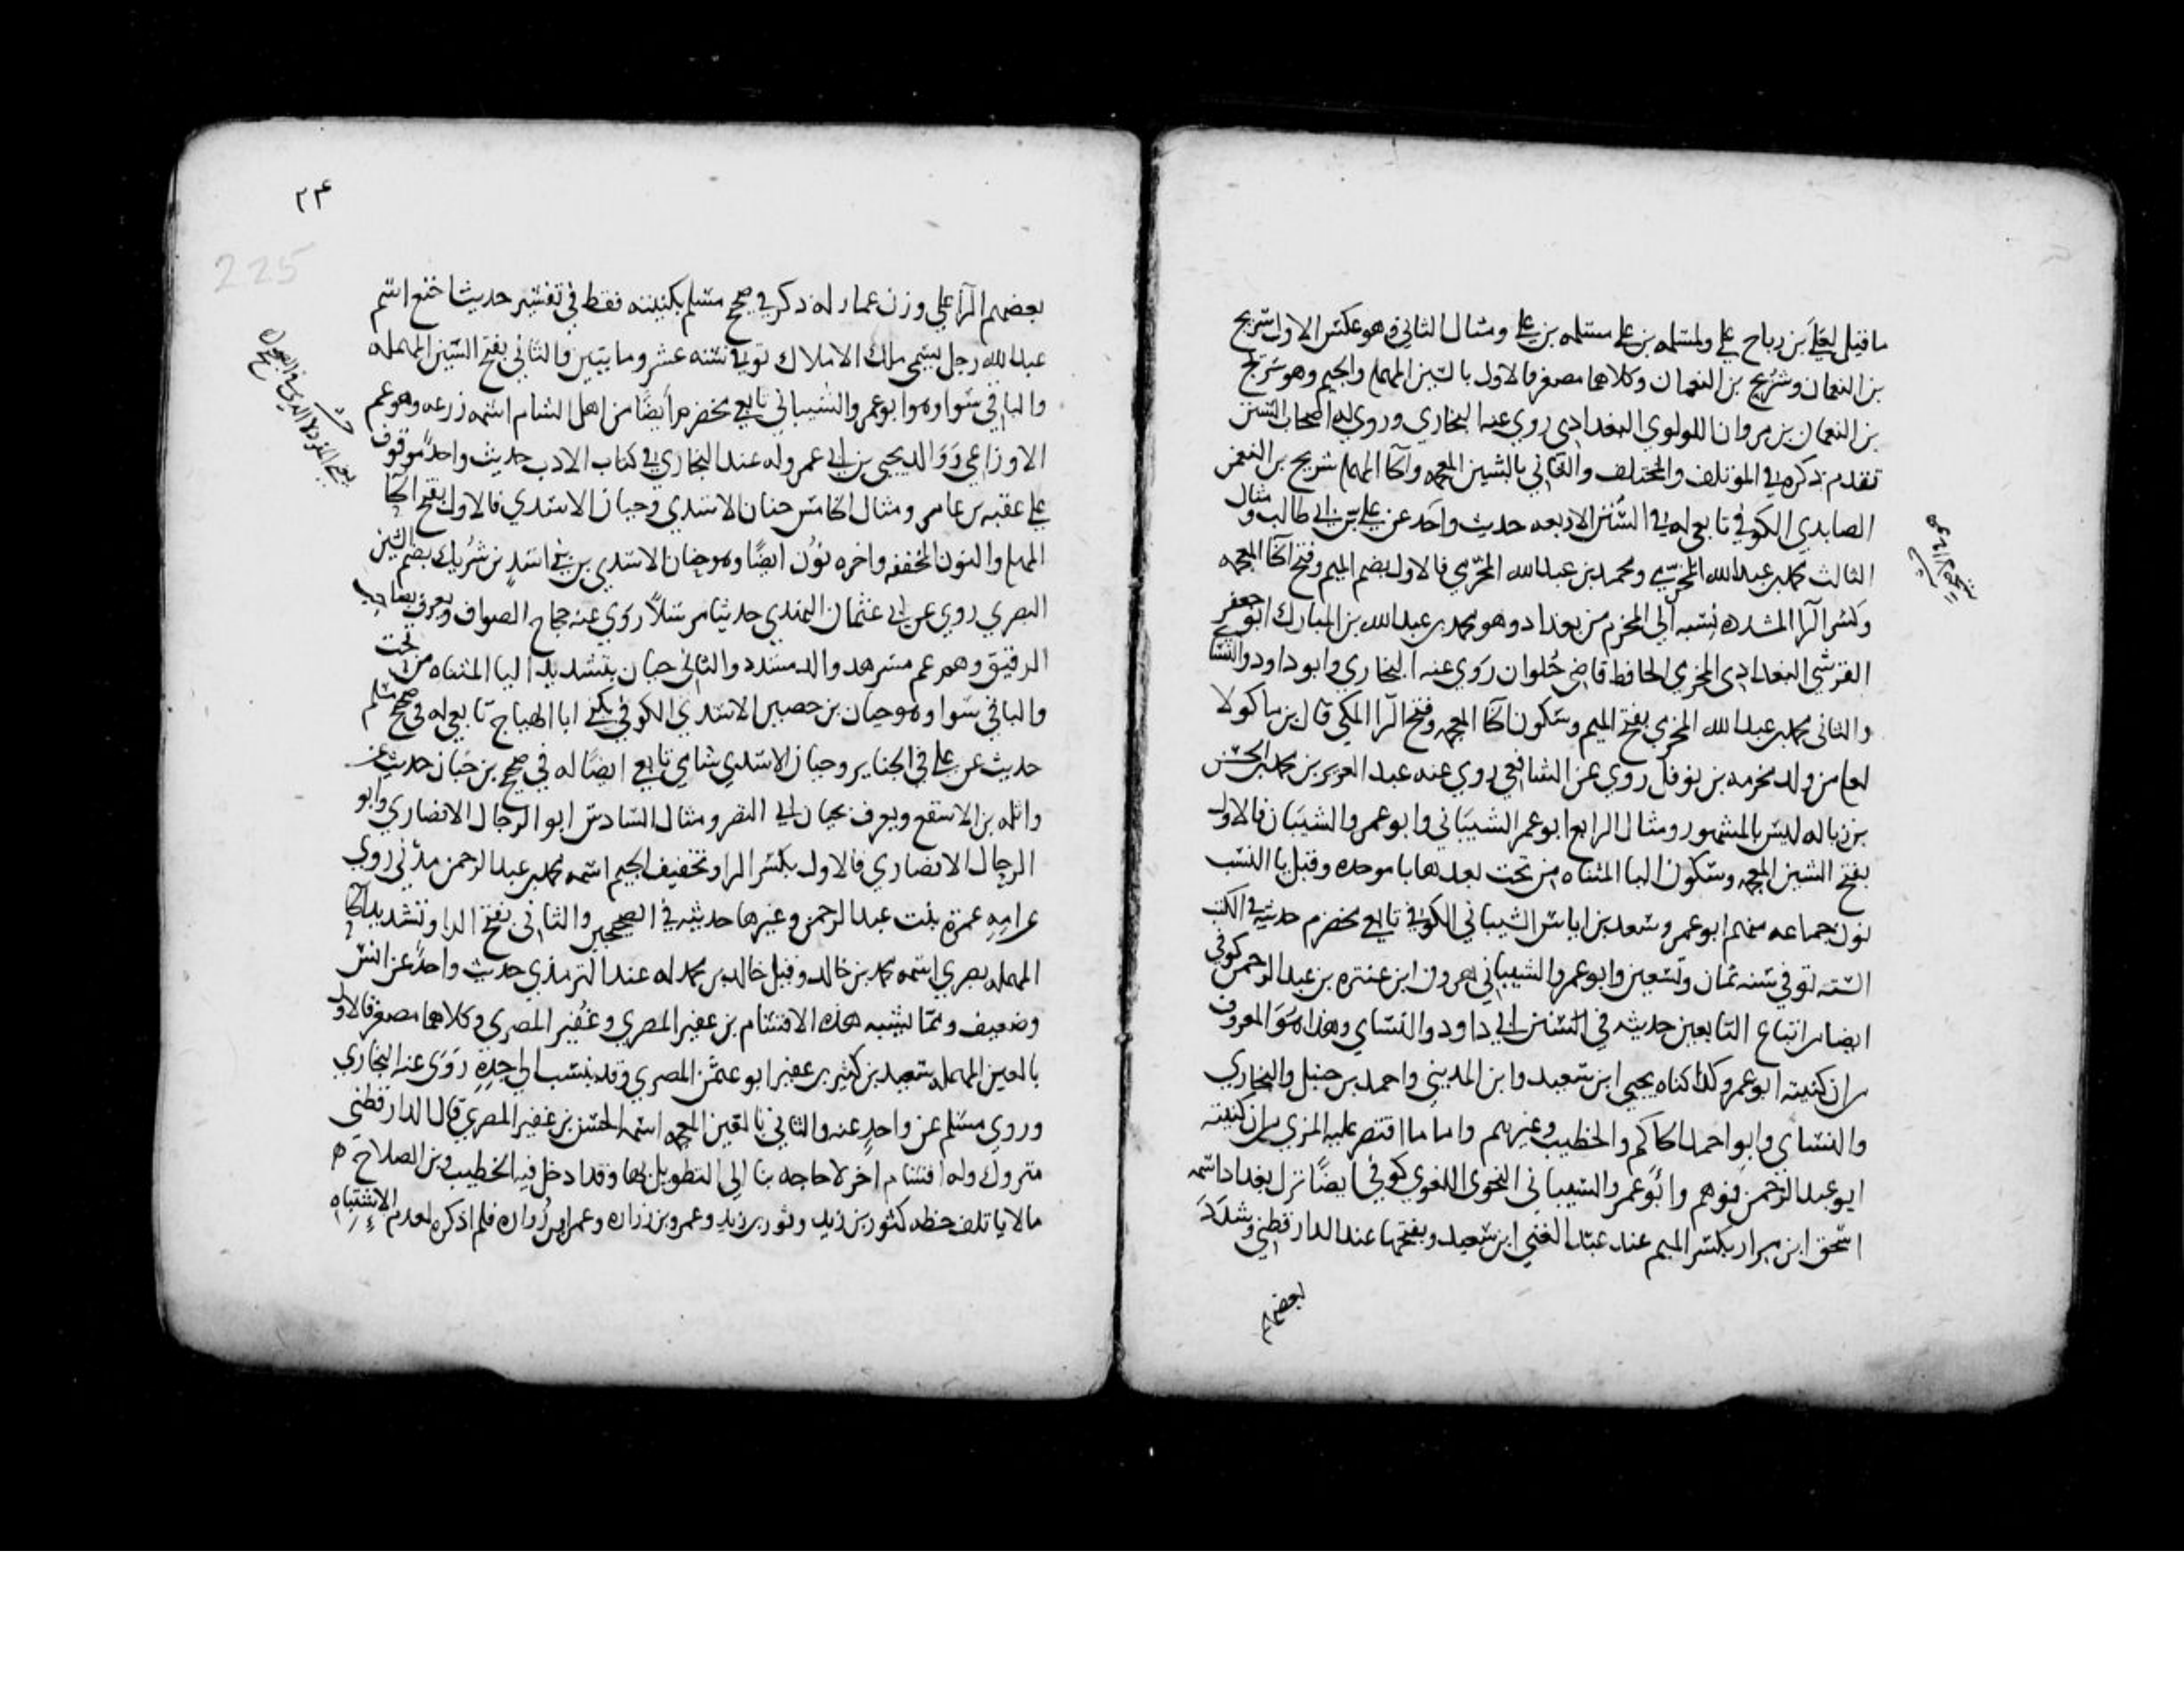 ما قيل لعلي بن رباح علي ولمسلمه بن علي مسلمه بن علي ومثال الثاني وهو عكس الاول سريج
بن النعمان وشريح بن النعمان وكلاهما مصغر فالاول بالسين المهمله والجيم وهو سريج
بن النعمان بن مروان اللولوي البغدادي روي عنه البخاري وروي له اصحاب السنن
تقدم ذكره في الموتلف والمختلف والثاني بالشين المعجمه والحا المهمله شريح بن النعمن
الصايدي الكوفي تابعي له في السنن الاربعه حديث واحد عن علي بن ابي طالب ومثال
الثالث محمد بن عبدالله المخرمي ومحمد بن عبدالله المخرمي فالاول بضم الميم وفتح الخا المعجمه
وكسر الرا المشدده نسبه الي المخرم من بغداد وهو محمد بن عبدالله بن المبارك ابو جعفر
القرشي البغدادي المخرمي الحافظ قاضي حلوان روي عنه البخاري وابو داود والنسا
والثاني محمد بن عبدالله المخرمي بفتح الميم وسكون الخا المعجمه وفتح الرا المكي قال بن ماكولا
لعله من ولد مخرمه بن نوفل روي عن الشافعي روي عنه عبد العزيز بن محمد بن الحسن
بن زباله ليس بالمشهور ومثال الرابع ابو عمرو الشيباني وابو عمرو السيبان فالاول
بفتح الشين المعجمه وسكون اليا المثناه من تحت بعدها با موحده وقبل يا النسب
نون جماعه منهم ابو عمرو سعد بن اياس الشيباني الكوفي تابعي مخضرم حديثه في الكتب
السته توفي سنه ثمان وتسعين وابو عمرو الشيباني هرون ابن عنتره بن عبدالرحمن كوفي
ايضا من اتباع التابعين حديثه في السنن ابي داود والنساي وهذا هو المعروف
من ان كنيته ابو عمرو كذا كناه يحيي ابن سعيد وابن المديني واحمد بن حنبل والبخاري
والنساي وابو احمد الحاكم والخطيب وغيرهم واما ما اقتصر عليه المزي من ان كنيته
ابو عبد الرحمن فوهم وابو عمرو الشيباني النحوي اللغوي كوفي ايضا نزل بغداد اسمه
اسحق ابن مرار بكسر الميم عند عبد الغني ابن سعيد وبفتحها عند الدارقطني وشدد
بعضهم
٢٢٤
225
بعضهم الرا علي وزن عمار له ذكر في صحيح مسلم بكنيته فقط في تفسير حديث اخنع اسم
عبدالله رجل يسمي ملك الاملاك توفي سنه عشر ومايتين والثاني بفتح السين المهمله
والباقي سوا وهو ابو عمرو السيباني تابعي مخضرم ايضا من اهل الشام اسمه زرعه وهو عم
الاوزاعي ووالد يحيي بن ابي عمرو له عند البخاري في كتاب الادب حديث واحد موقوف
علي عقبه بن عامر ومثال الخامس حنان الاسدي وحيان الاسدي فالاول بفتح الحا
المهمله والنون المخففه واخره نون ايضا وهو حنان الاسدي من بني اسد بن شريك بضم الشين
البصري روي عن ابي عثمان النهدي حديثا مرسلا روي عنه حجاج الصواف ويعرف بصاحب
الرقيق وهو عم مسرهد والد مسدد والثاني حيان بتشديد اليا المثناه من تحت
والباقي سوا وهو حيان بن حصين الاسدي الكوفي يكني ابا الهياج تابعي له في صحيح مسلم
حديث عن علي في الجنايز وحيان الاسدي شامي تابعي ايضا له في صحيح بن حبان حديث عن
واثله بن الاسقع ويعرف بحيان ابي النضر ومثال السادس ابو الرجال الانصاري وابو
الرحال الانصاري فالاول بكسر الرا وتخفيف الجيم اسمه محمد بن عبدالرحمن مدني روي
عن امه عمرة بنت عبدالرحمن وغيرها حديثه في الصحيحين والثاني بفتح الرا وتشديد الحا
المهمله بصري اسمه محمد بن خالد وقيل خالد بن محمد له عند الترمذي حديث واحد عن انس
وضعيف ومما يشبه هذه الاقسام بن عفير المصري وغفير المصري وكلاهما مصغر فالاول
بالعين المهمله سعيد بن كثير بن عفير ابو عثمن المصري وقد ينسب الي جده روي عنه البخاري
وروي مسلم عن واحد عنه والثاني بالغين المعجمه اسمه الحسن بن غفير المصري قال الدارقطني
متروك وله اقسام اخر لا حاجه بنا الي التطويل بها وقد ادخل فيه الخطيب وبن الصلاح
مالا ياتلف خطه كثور بن زيد وثور بن يزيد وعمرو بن زراره وعمرو بن زراره فلم اذكره لعدم الاشتباه